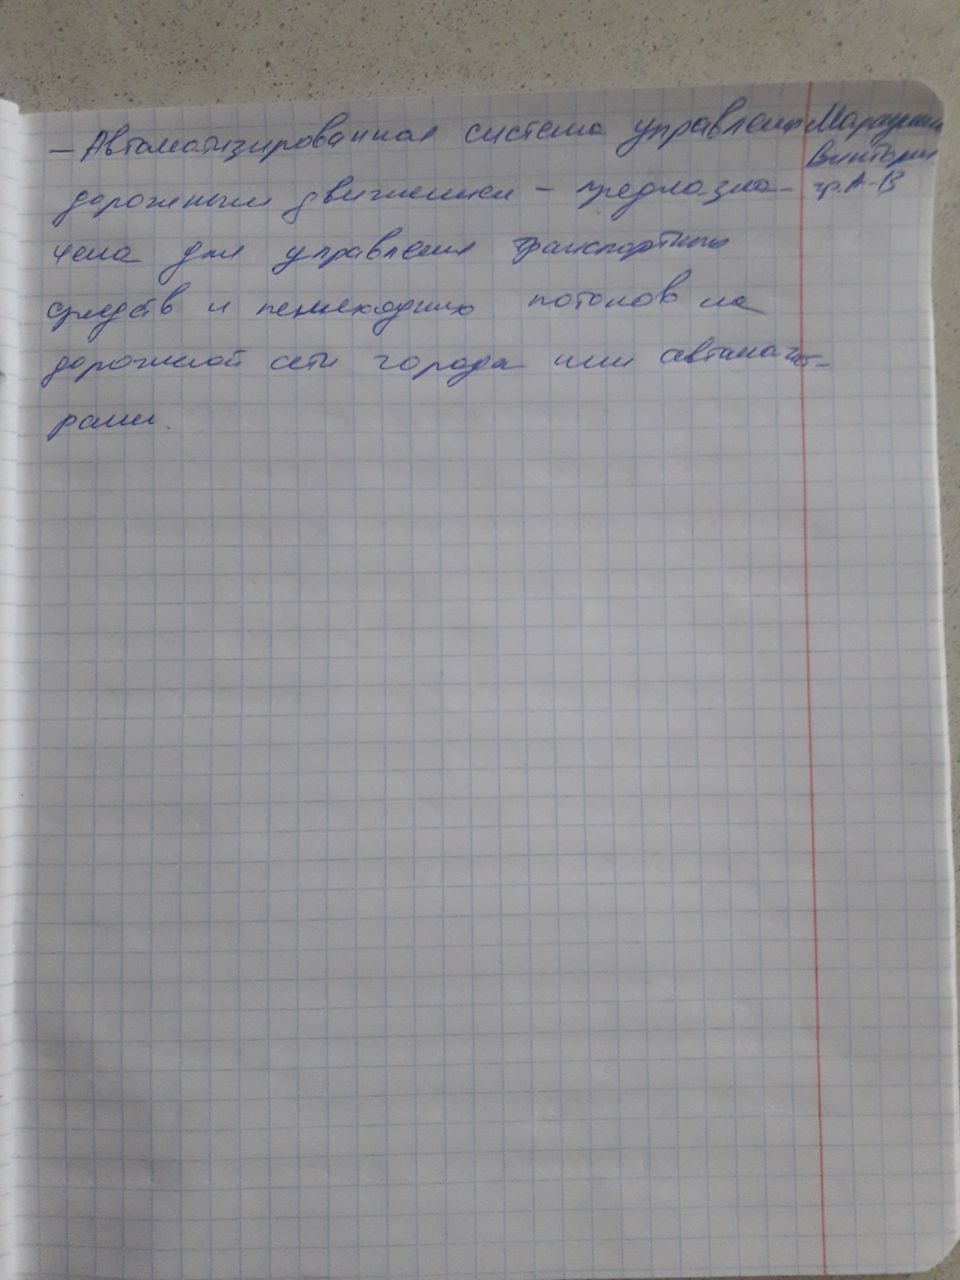 — Автоматизированная система управления
дорожным движением – предназна-
чена для управления транспортных
средств и пешеходных потоков на
дорожной сети города или автомагист-
рали.
Виктория
гр. А-В